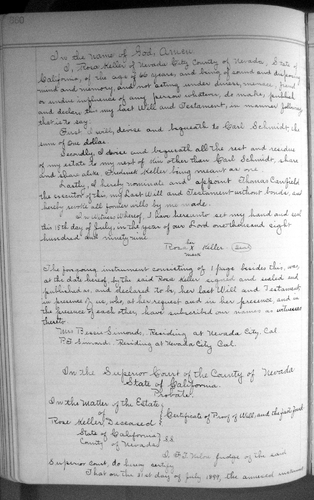 In the name of God, Amen
I, Rosa Keller of Nevada City County of Nevada, State of
California, of the age of 66 years, and being of sound and disposing
mind and memory, and not acting under duress, menace, fraud
or undue influence of any person whatever, do make, publish
and declare this my last Will and Testament, in manner following
that is to say:
First I will, devise and bequeath to Carl Schmidt, the
sum of one dollar.
Secondly I devise and bequeath all the rest and residue
of my estate to my next of kin other than Carl Schmidt, share
and share alike Fredrick Keller being meant as one.
Lastly, I hereby nominate and appoint Thomas Canfield
the executor of this my Last Will and Testament without bonds, and
hereby revoke all former wills by me made.
In Witness Whereof, I have hereunto set my hand and seal
this 15th day of July, in the year of our Lord one thousand eight
hundred and ninety nine.
her
Rosa X Keller (Seal)
mark
The foregoing instrument consisting of 1 page besides this, was,
at the date hereof, by the said Rosa Keller signed and sealed and
published as, and declared to be, her Last Will and Testament
in presence of us, who, at her request and in her presence, and in
the presence of each other, have subscribed our names as witnesses
thereto
Mrs Simonds, Residing at Nevada City. Cal.
Simonds. Residing at Nevada City Cal.
In the Superior Court of the County of Nevada
State of California.
Probate.
In the Matter of the Estate
of
Rose Keller Deceased
Certificate of Proof of Will, and the facts found
State of California } ss
County of Nevada
I. F. T. Nilon Judge of the said
Superior Court, do hereby certify
That on the 31st day of July 1899, the annexed instrument